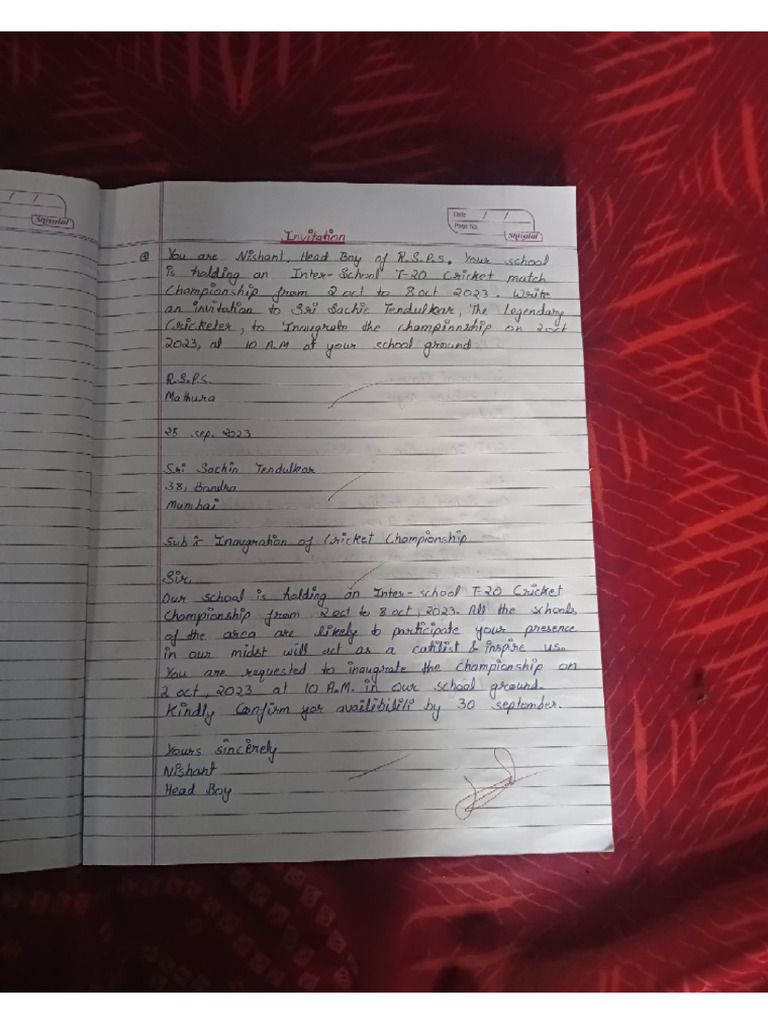 Shivalal
Date / /
Page No.
Shivalal
Invitation
You are Nishant, Head Boy of R.S.P.S. Your school
is holding an Inter-School T-20 Cricket match
Championship from 2 oct to 8 oct 2023. Write
an invitation to Sri Sachic Tendulkar, The Legendary
Cricketer, to Inaugrate the championship on 2 oct
2023, at 10 A.M at your school ground
R.S.P.S.
Mathura
25 sep. 2023
Sri Sachin Tendulkar
38, Bandra
Mumbai
Sub:- Inaugration of Cricket Championship
Sir,
Our school is holding an Inter-school T-20 Cricket
Championship from 2 oct to 8 oct, 2023. All the schools
of the area are likely to participate your presence
in our midst will act as a catilist & inspire us.
You are requested to inaugrate the championship on
2 oct, 2023 at 10 A.M. in our school ground.
Kindly Confirm yor availibiliti by 30 september.
Yours sincerely
Nishant
Head Boy